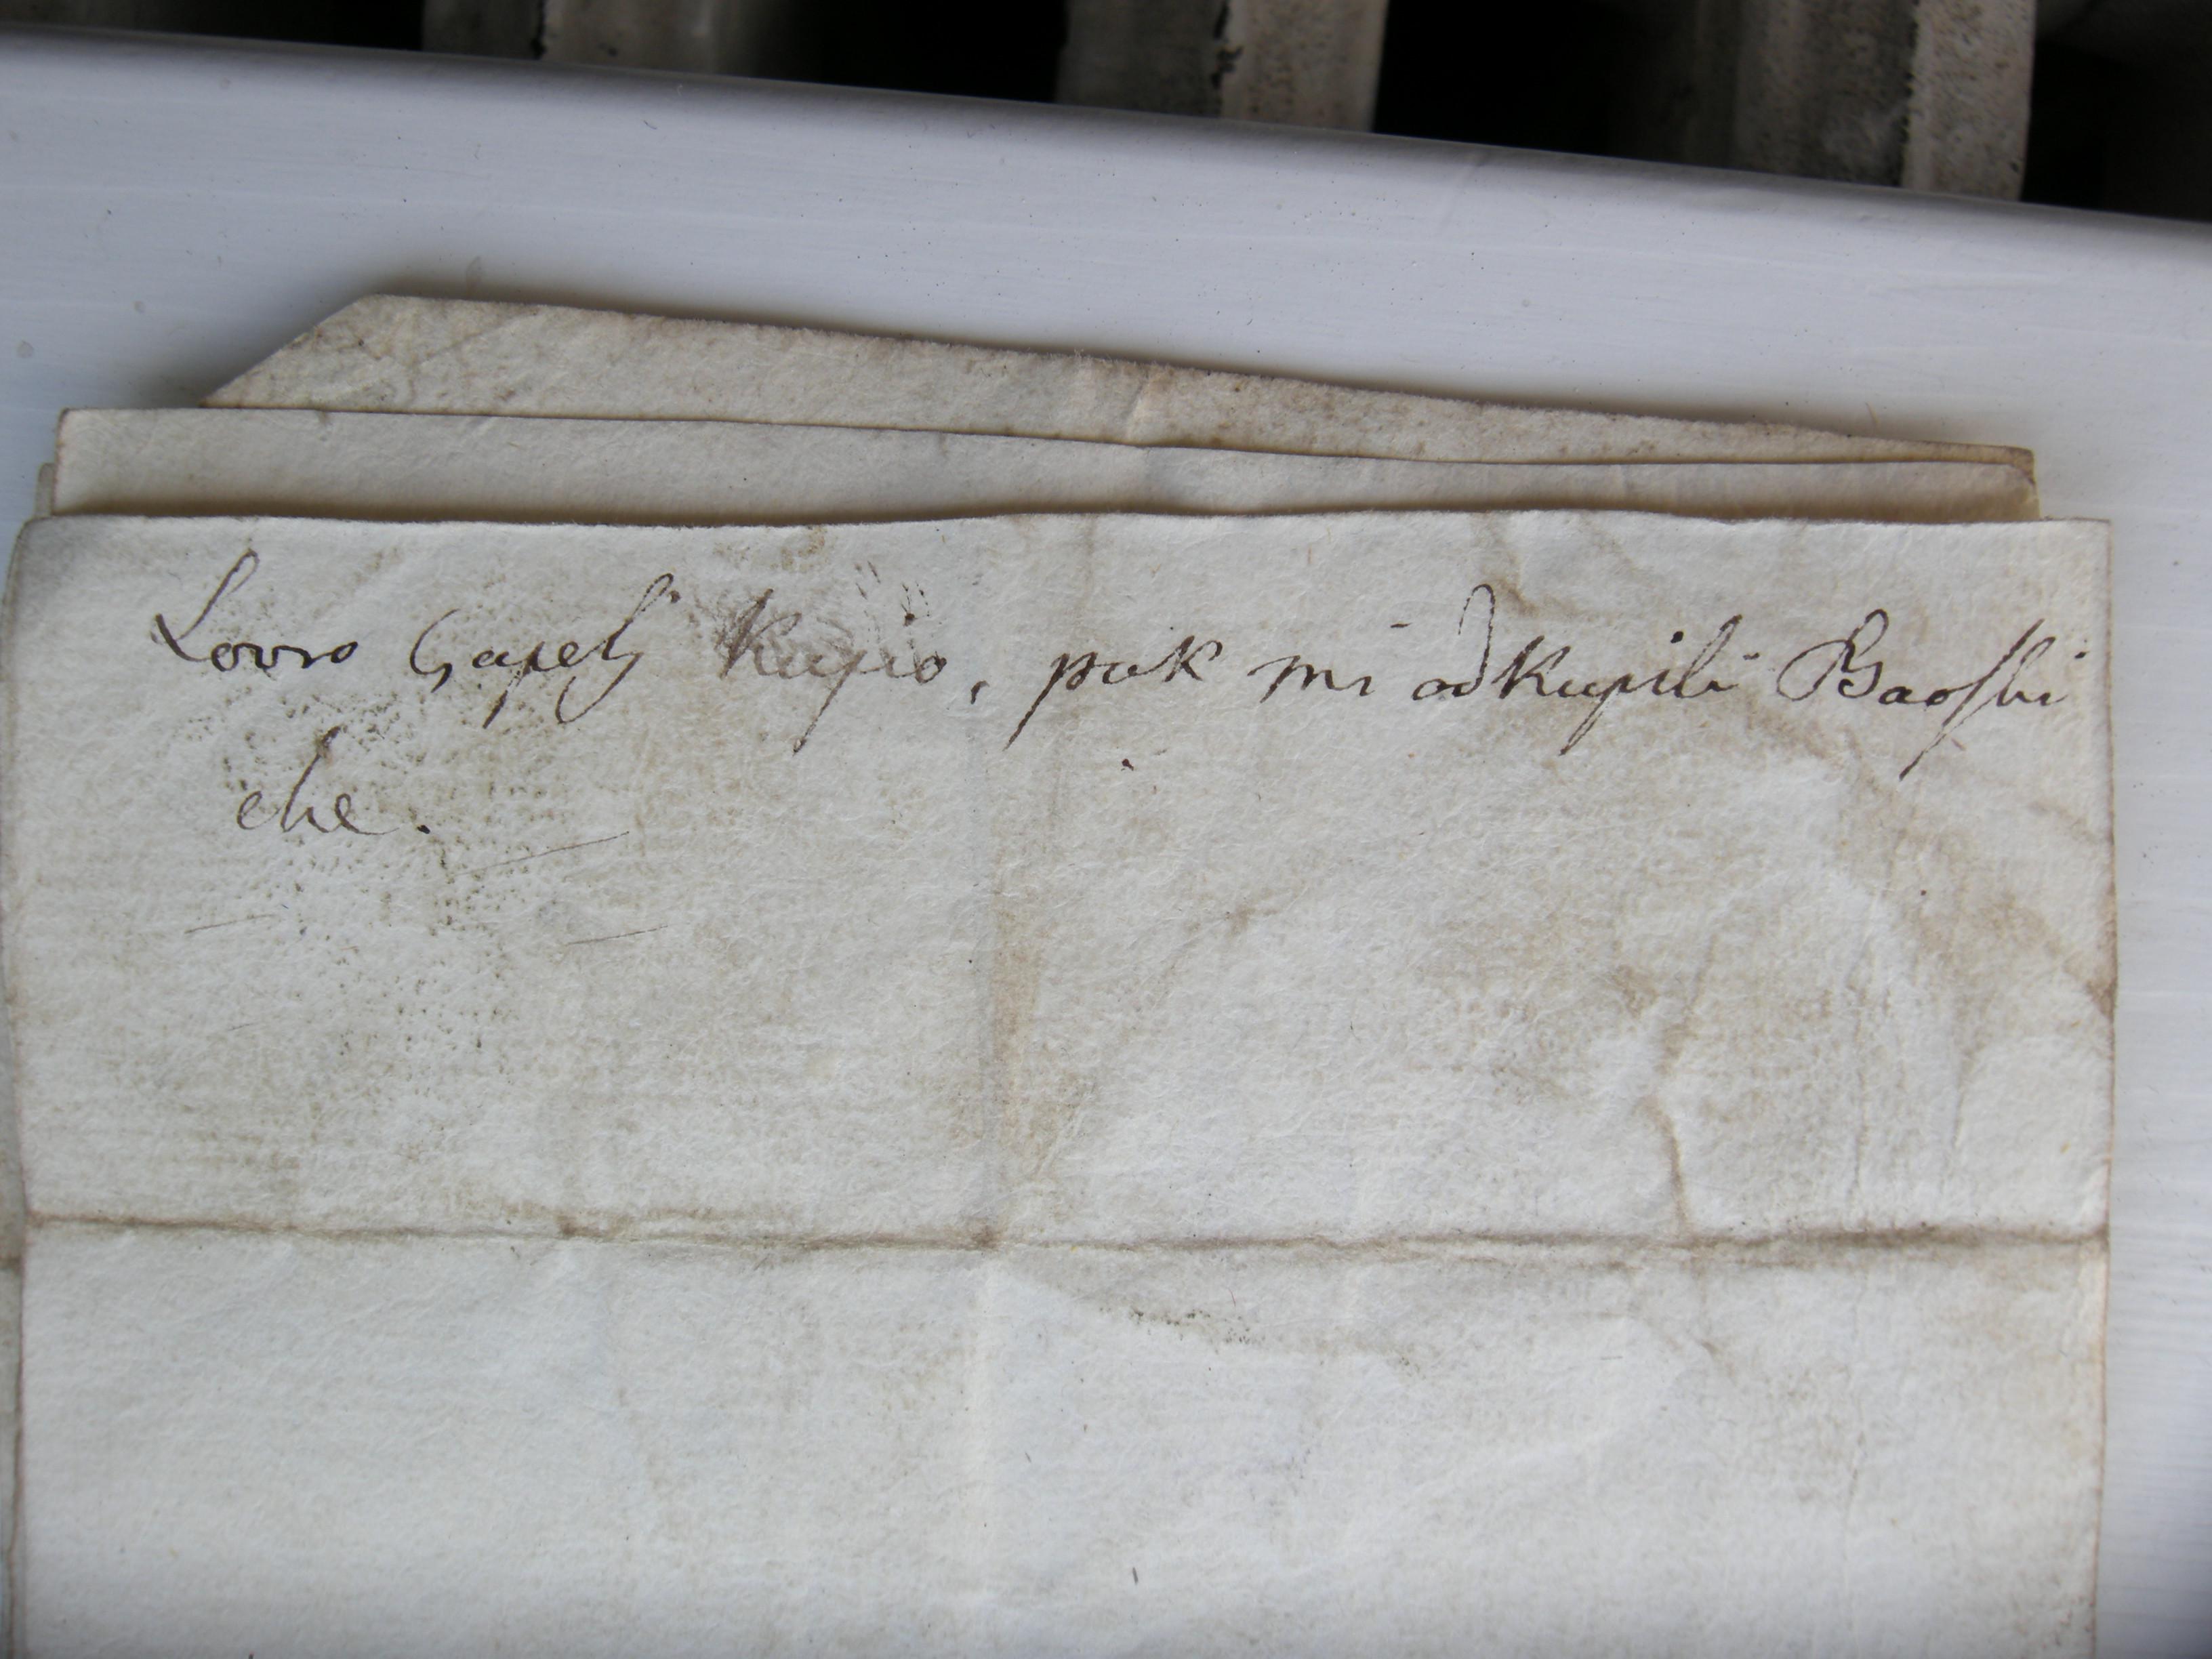 Lovro Gapelj Kupio, pak mi odkupili Baoshi
che.